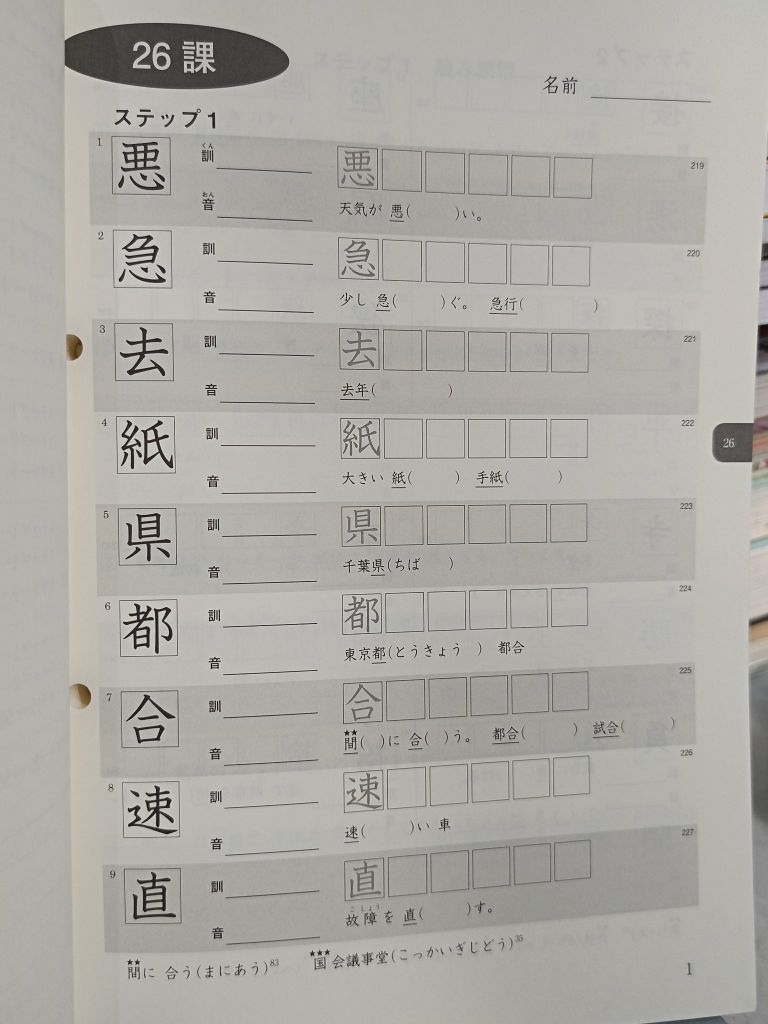 26 課
名前
ステップ1
1 悪 訓 くん 悪 219
音 おん
天気が 悪( )い。
2 急 訓 急 220
音
少し 急( )ぐ。 急行( )
3 去 訓 去 221
音
去年( )
4 紙 訓 紙 222
音
大きい 紙( ) 手紙( )
26
5 県 訓 県 223
音
千葉県(ちば )
6 都 訓 都 224
音
東京都(とうきょう ) 都合
7 合 訓 合 225
音
★★
間( )に 合( )う。 都合( ) 試合( )
8 速 訓 速 226
音
速( )い 車
9 直 訓 直 227
音
こ しょう
故障を 直( )す。
★★ ★★★
間に 合う(まにあう)83 国会議事堂(こっかいぎじどう)35
1